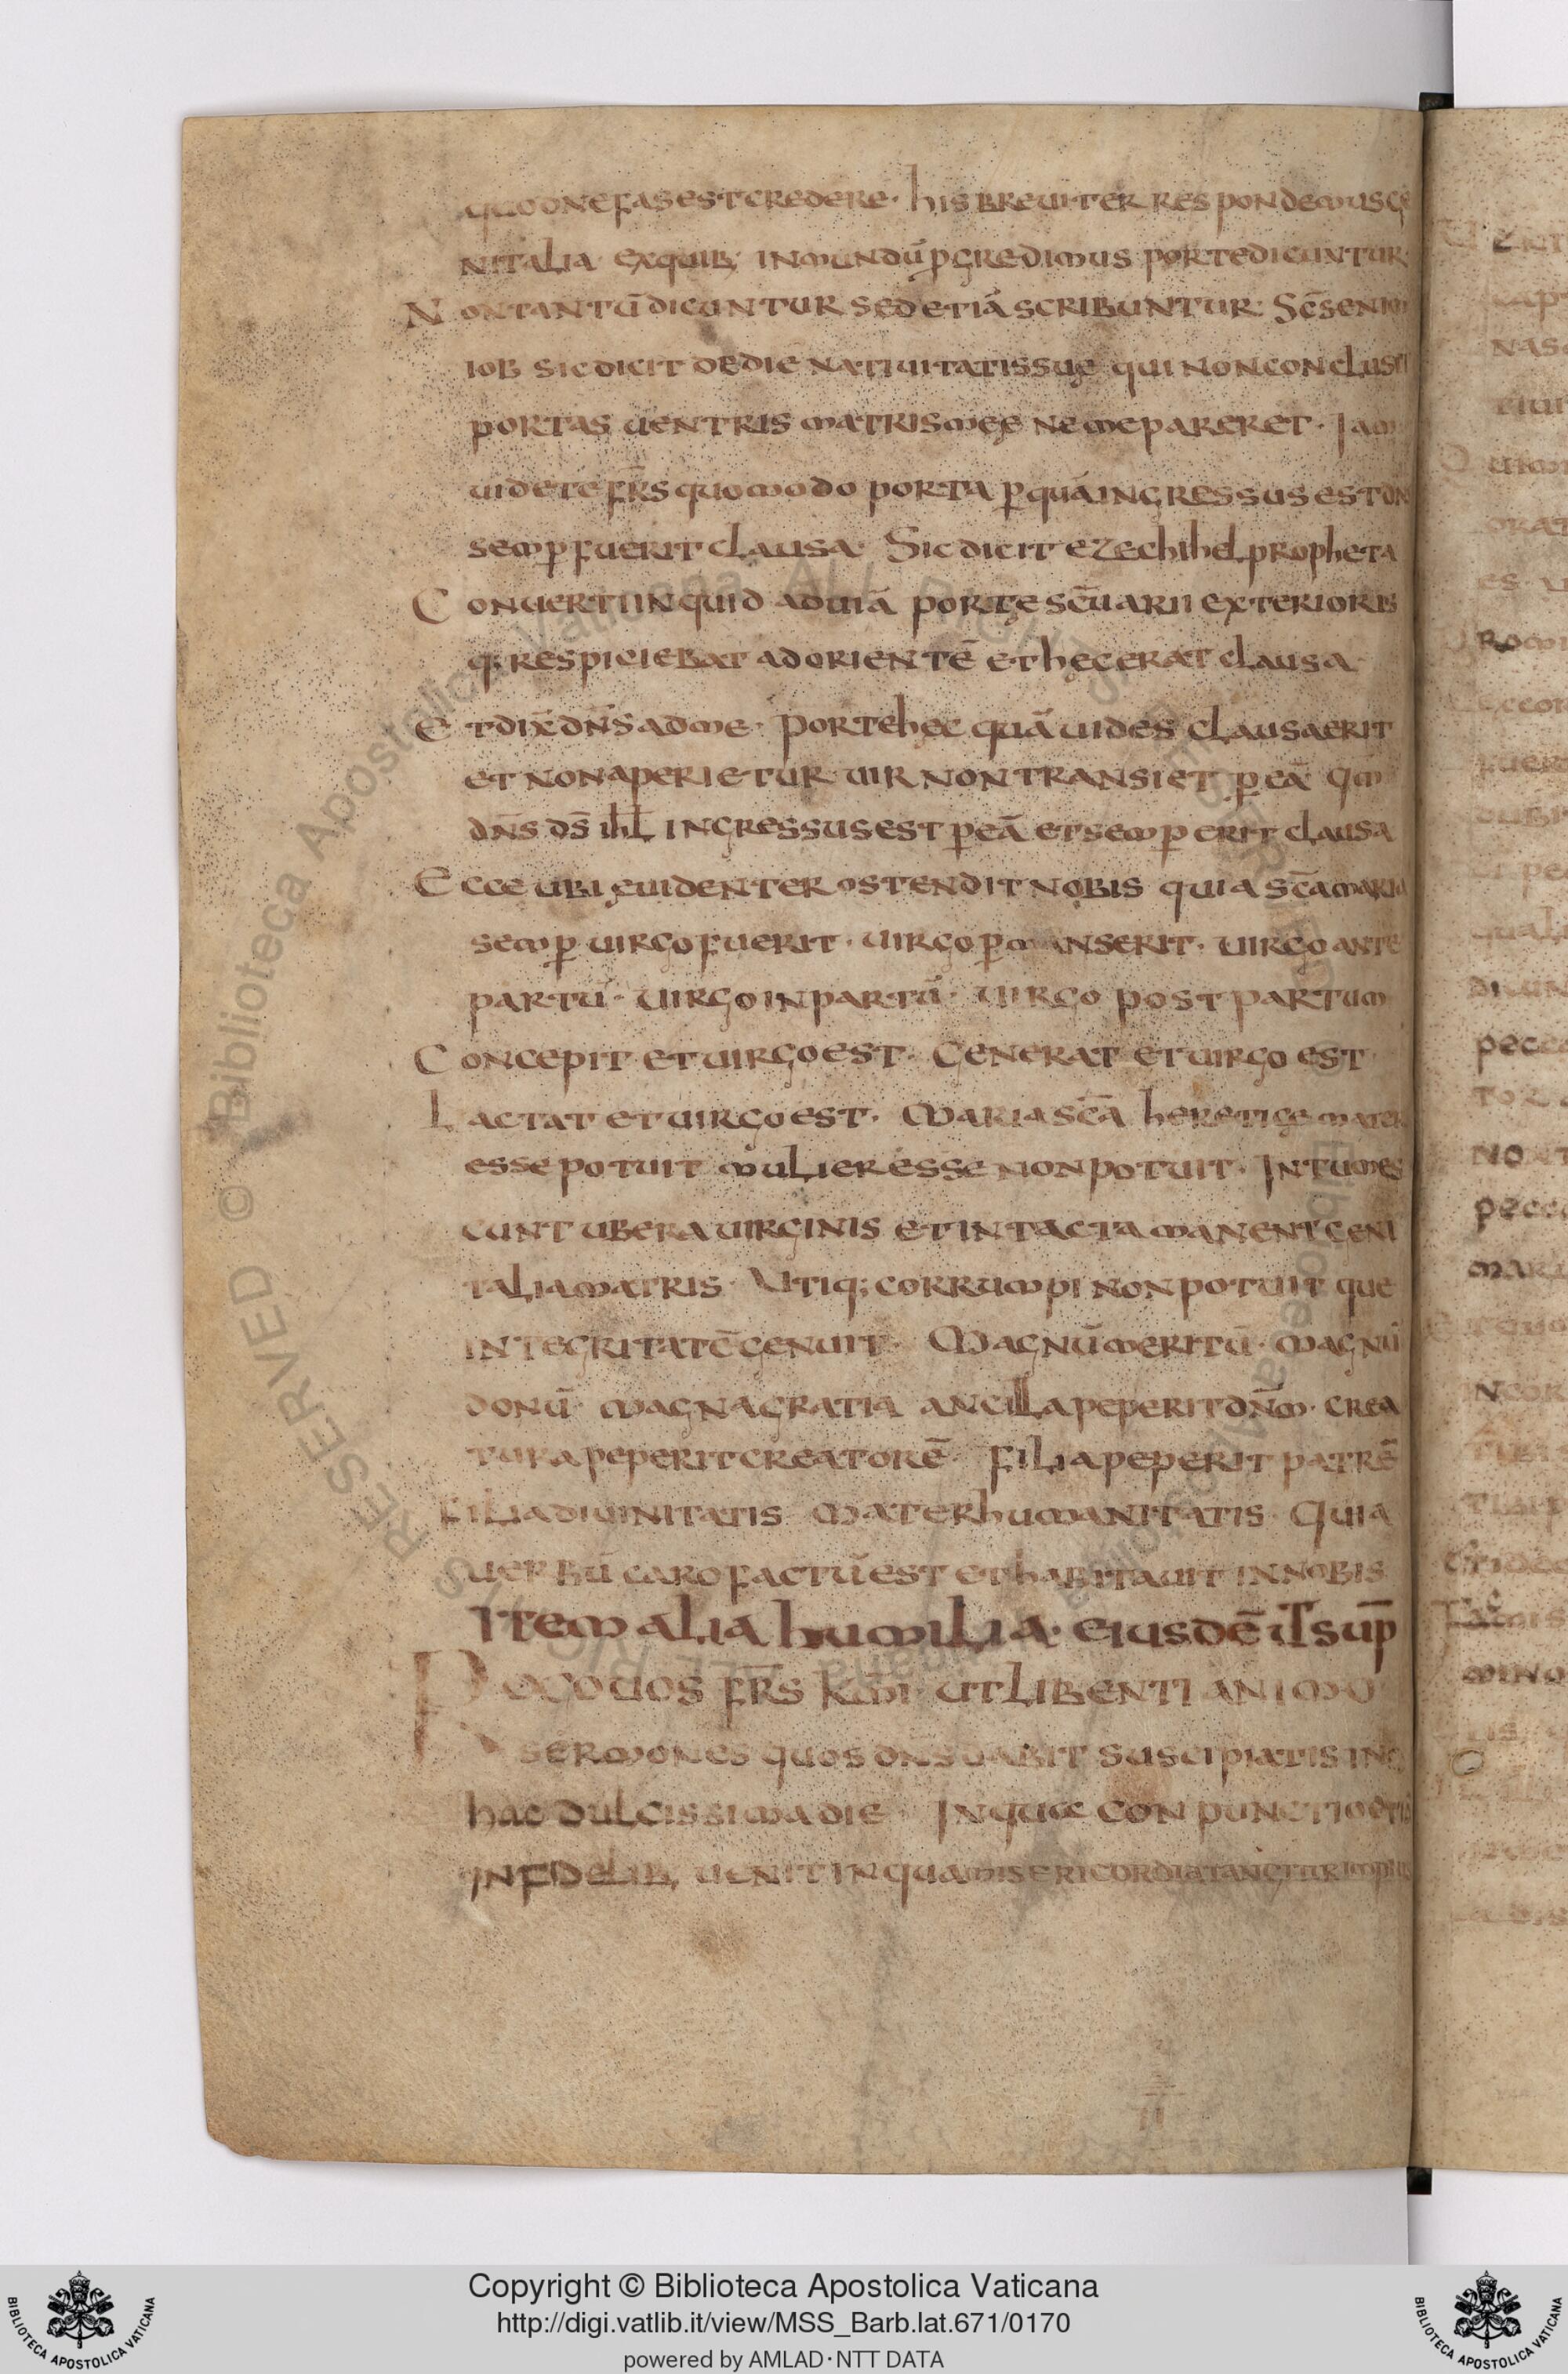 quod nefas est credere · his breuiter respondemus ge
nitalia ex quib; in mundū p̄gredimus porte dicuntur ·
Non tantū dicuntur sed etiā scribuntur · Sc̄s enim
iob sic dicit de die natiuitatis suę qui non conclusit
portas uentris matris meę ne me pareret · Iam
uidete fr̄s quomodo porta p̄ quā ingressus est dn̄s
semp̄ fuerit clausa · Sic dicit ezechihel propheta
Conuerti inquid ad uiā portę sc̄uarii exterioris
q; respiciebat ad orientē et hęc erat clausa ·
Et dix̄ dn̄s ad me · Porte hec quā uides clausa erit
et non aperietur uir non transiet p̄ eā qm̄
dn̄s ds̄ ihl̄ ingressus est p̄ eā et semp̄ erit clausa
Ecce ubi euidenter ostendit nobis quia sc̄a maria
semp̄ uirgo fuerit · uirgo p̄manserit · uirgo ante
partū · uirgo in partū · uirgo post partum
Concepit et uirgo est · Generat et uirgo est
Lactat et uirgo est · Maria sc̄ā heretice mater
esse potuit mulier esse non potuit · Intumes
cunt ubera uirginis et intacta manent geni
talia matris · Utiq; corrumpi non potuit que
integritatē genuit · Magnū meritū · magnū
donū · magna gratia ancilla peperit dn̄m · crea
tura peperit creatorē · filia peperit patrē
filia diuinitatis mater humanitatis · Quia
uerbū caro factū est et habitauit in nobis
Item alia humilia · eiusdē ut sup̄
Rogo uos fr̄s km̄i · ut libenti animo
sermones quos dn̄s dabit suscipiatis in
hac dulcissima die In qua conpunctio
in fidelib; uenit in qua misericordia tangitur
Copyright © Biblioteca Apostolica Vaticana
http://digi.vatlib.it/view/MSS_Barb.lat.671/0170
powered by AMLAD·NTT DATA
BIBLIOTECA APOSTOLICA VATICANA
BIBLIOTECA APOSTOLICA VATICANA